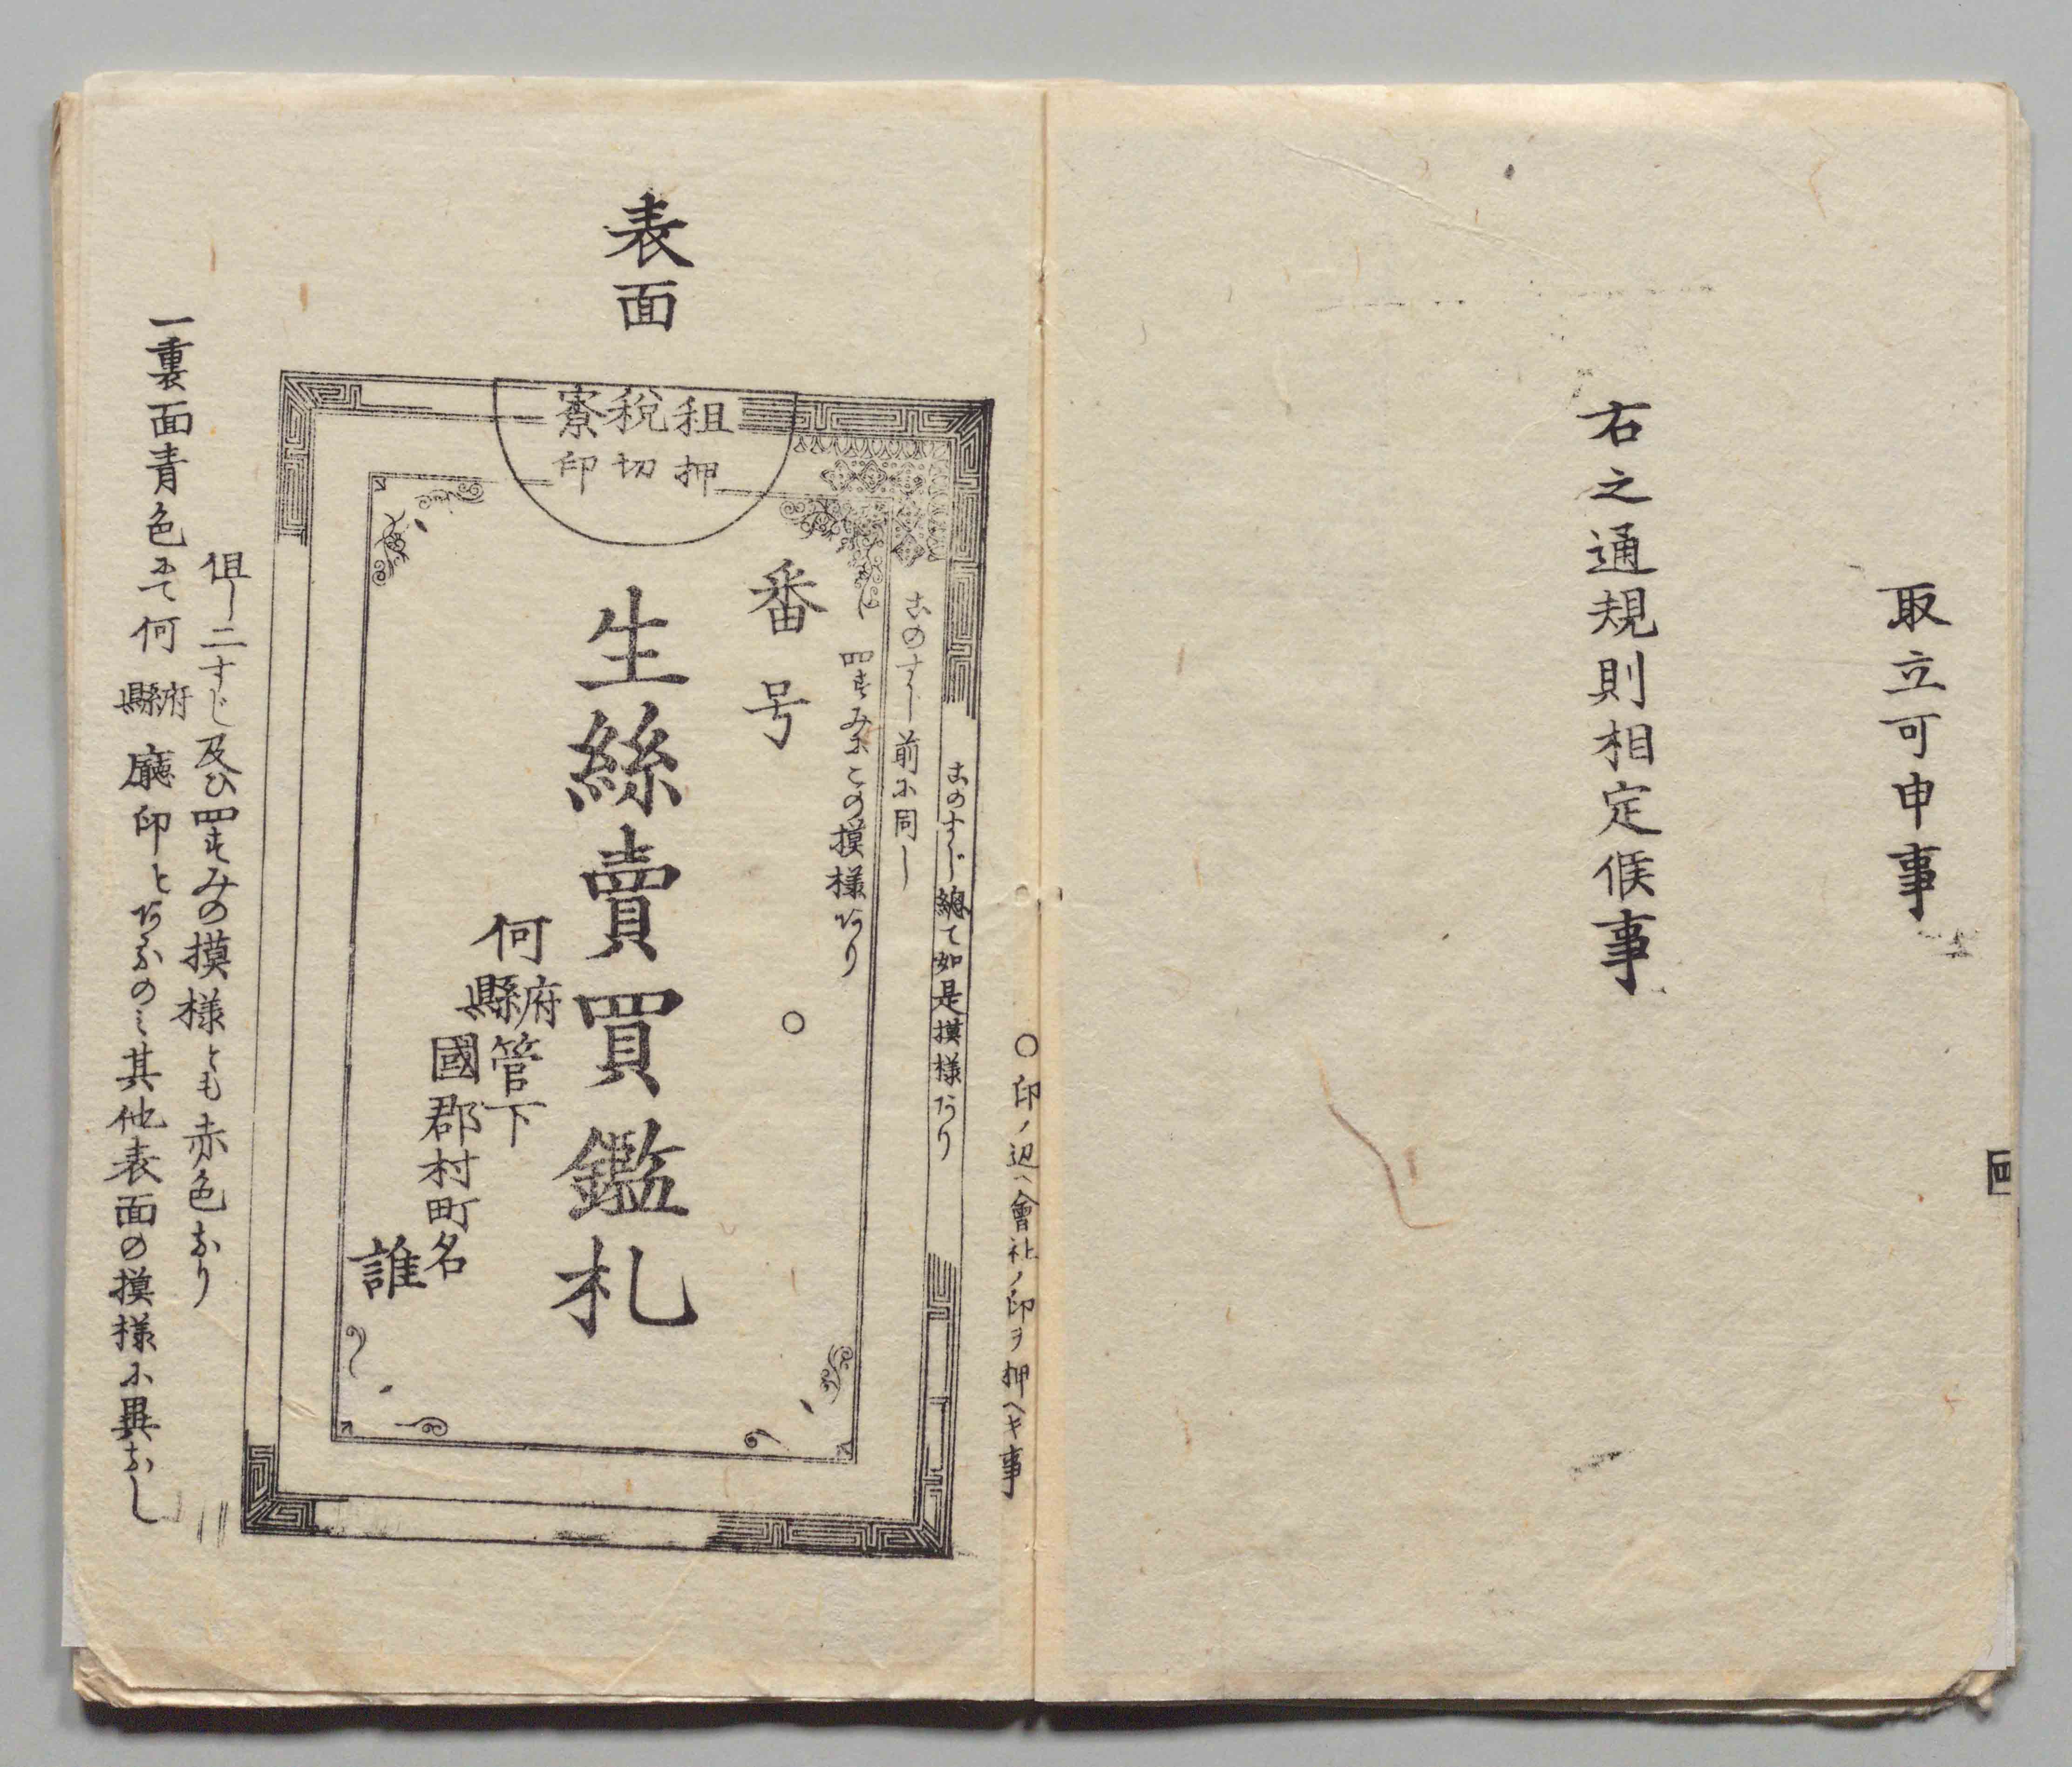 取立可申事
右之通規則相定候事
四
〇印ノ辺ヘ會社ノ印ヲ押ヘキ事
表面
租税寮
押切印
このすじ總て如是摸様あり
このすじ前に同し
四すみにこの摸様あり
番号
〇
生絲賣買鑑札
何府縣管下
國郡村町名
誰
但し二すじ及ひ四すみの摸様とも赤色なり
一裏面青色にて何府縣廳印とあるのミ其他表面の摸様に異なし